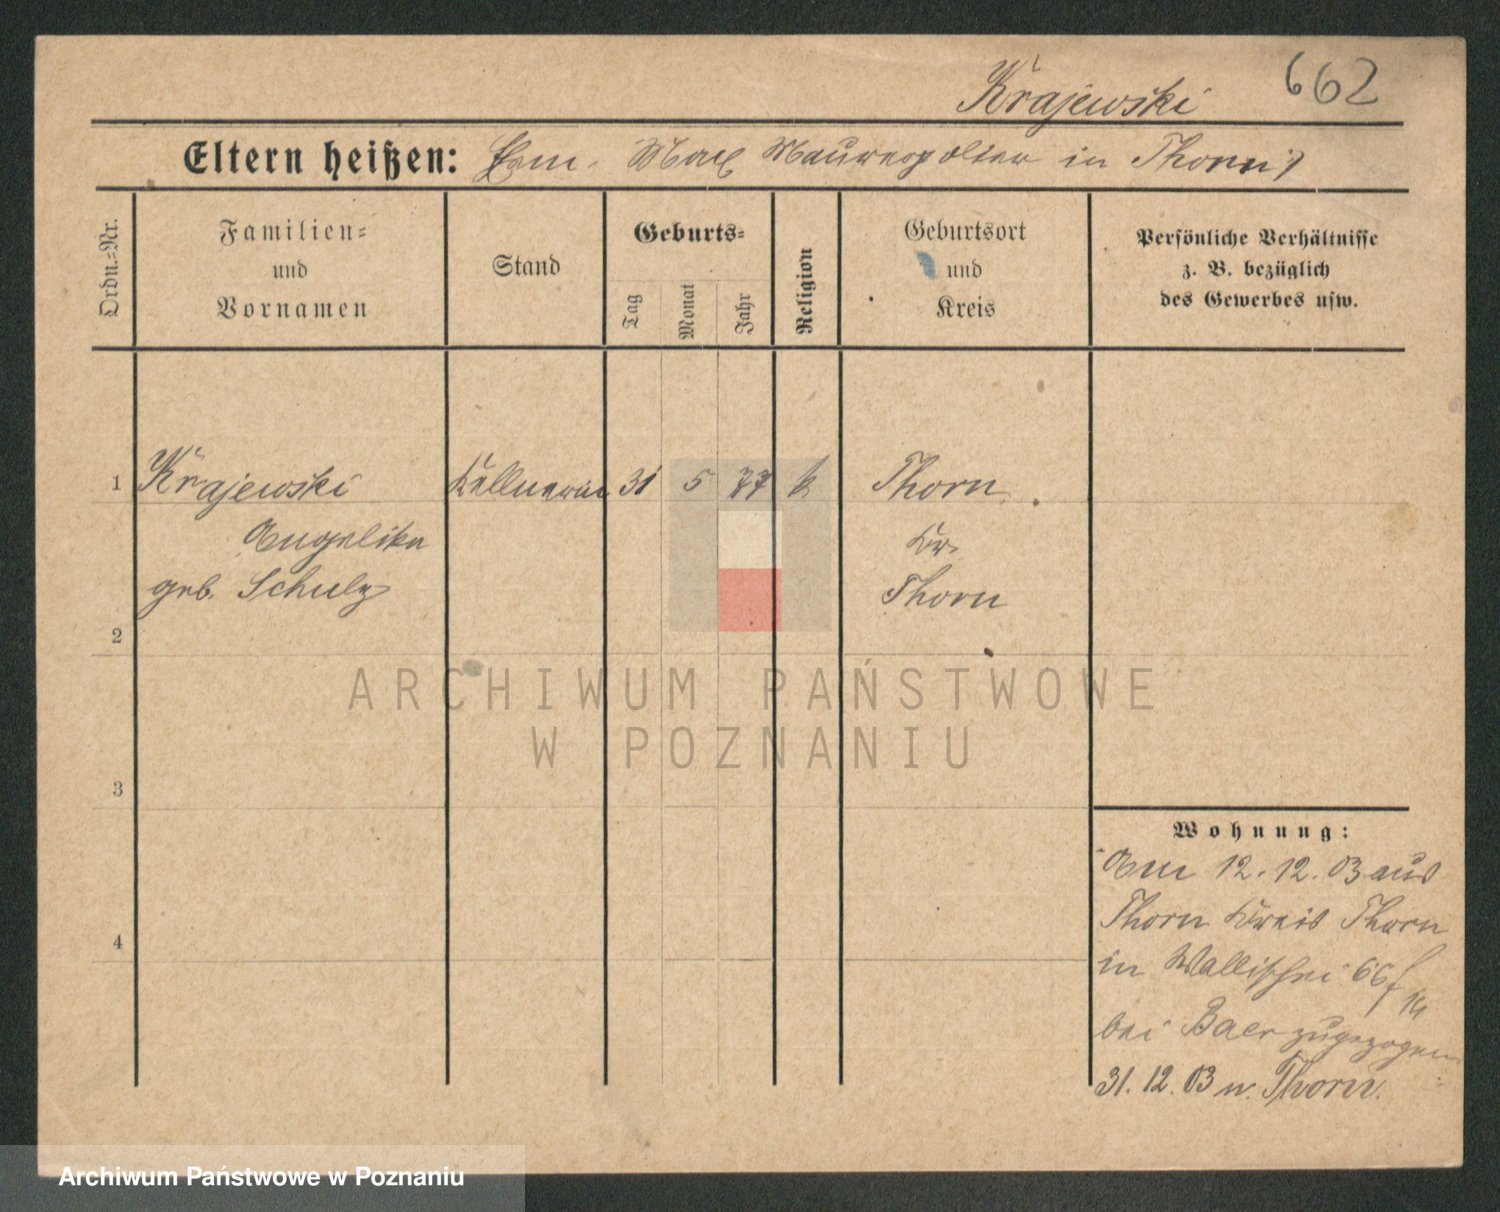 Krajewski 662
Eltern heißen: Max Maurerpolier in Thorn
Ordn.-Nr.
Familien-
und
Vornamen
Stand
Geburts-
Tag
Monat
Jahr
Religion
Geburtsort
und
Kreis
Persönliche Verhältnisse
z. B. bezüglich
des Gewerbes usw.
1 Krajewski Kellnerin 31 5 77 k Thorn
Angelika Kr.
geb. Schulz Thorn
2
ARCHIWUM PAŃSTWOWE
W POZNANIU
3
4
Wohnung:
Am 12.12.03 aus
Thorn Kreis Thorn
in Wallischei 66
bei Baer zugezogen
31.12.03 n. Thorn.
Archiwum Państwowe w Poznaniu